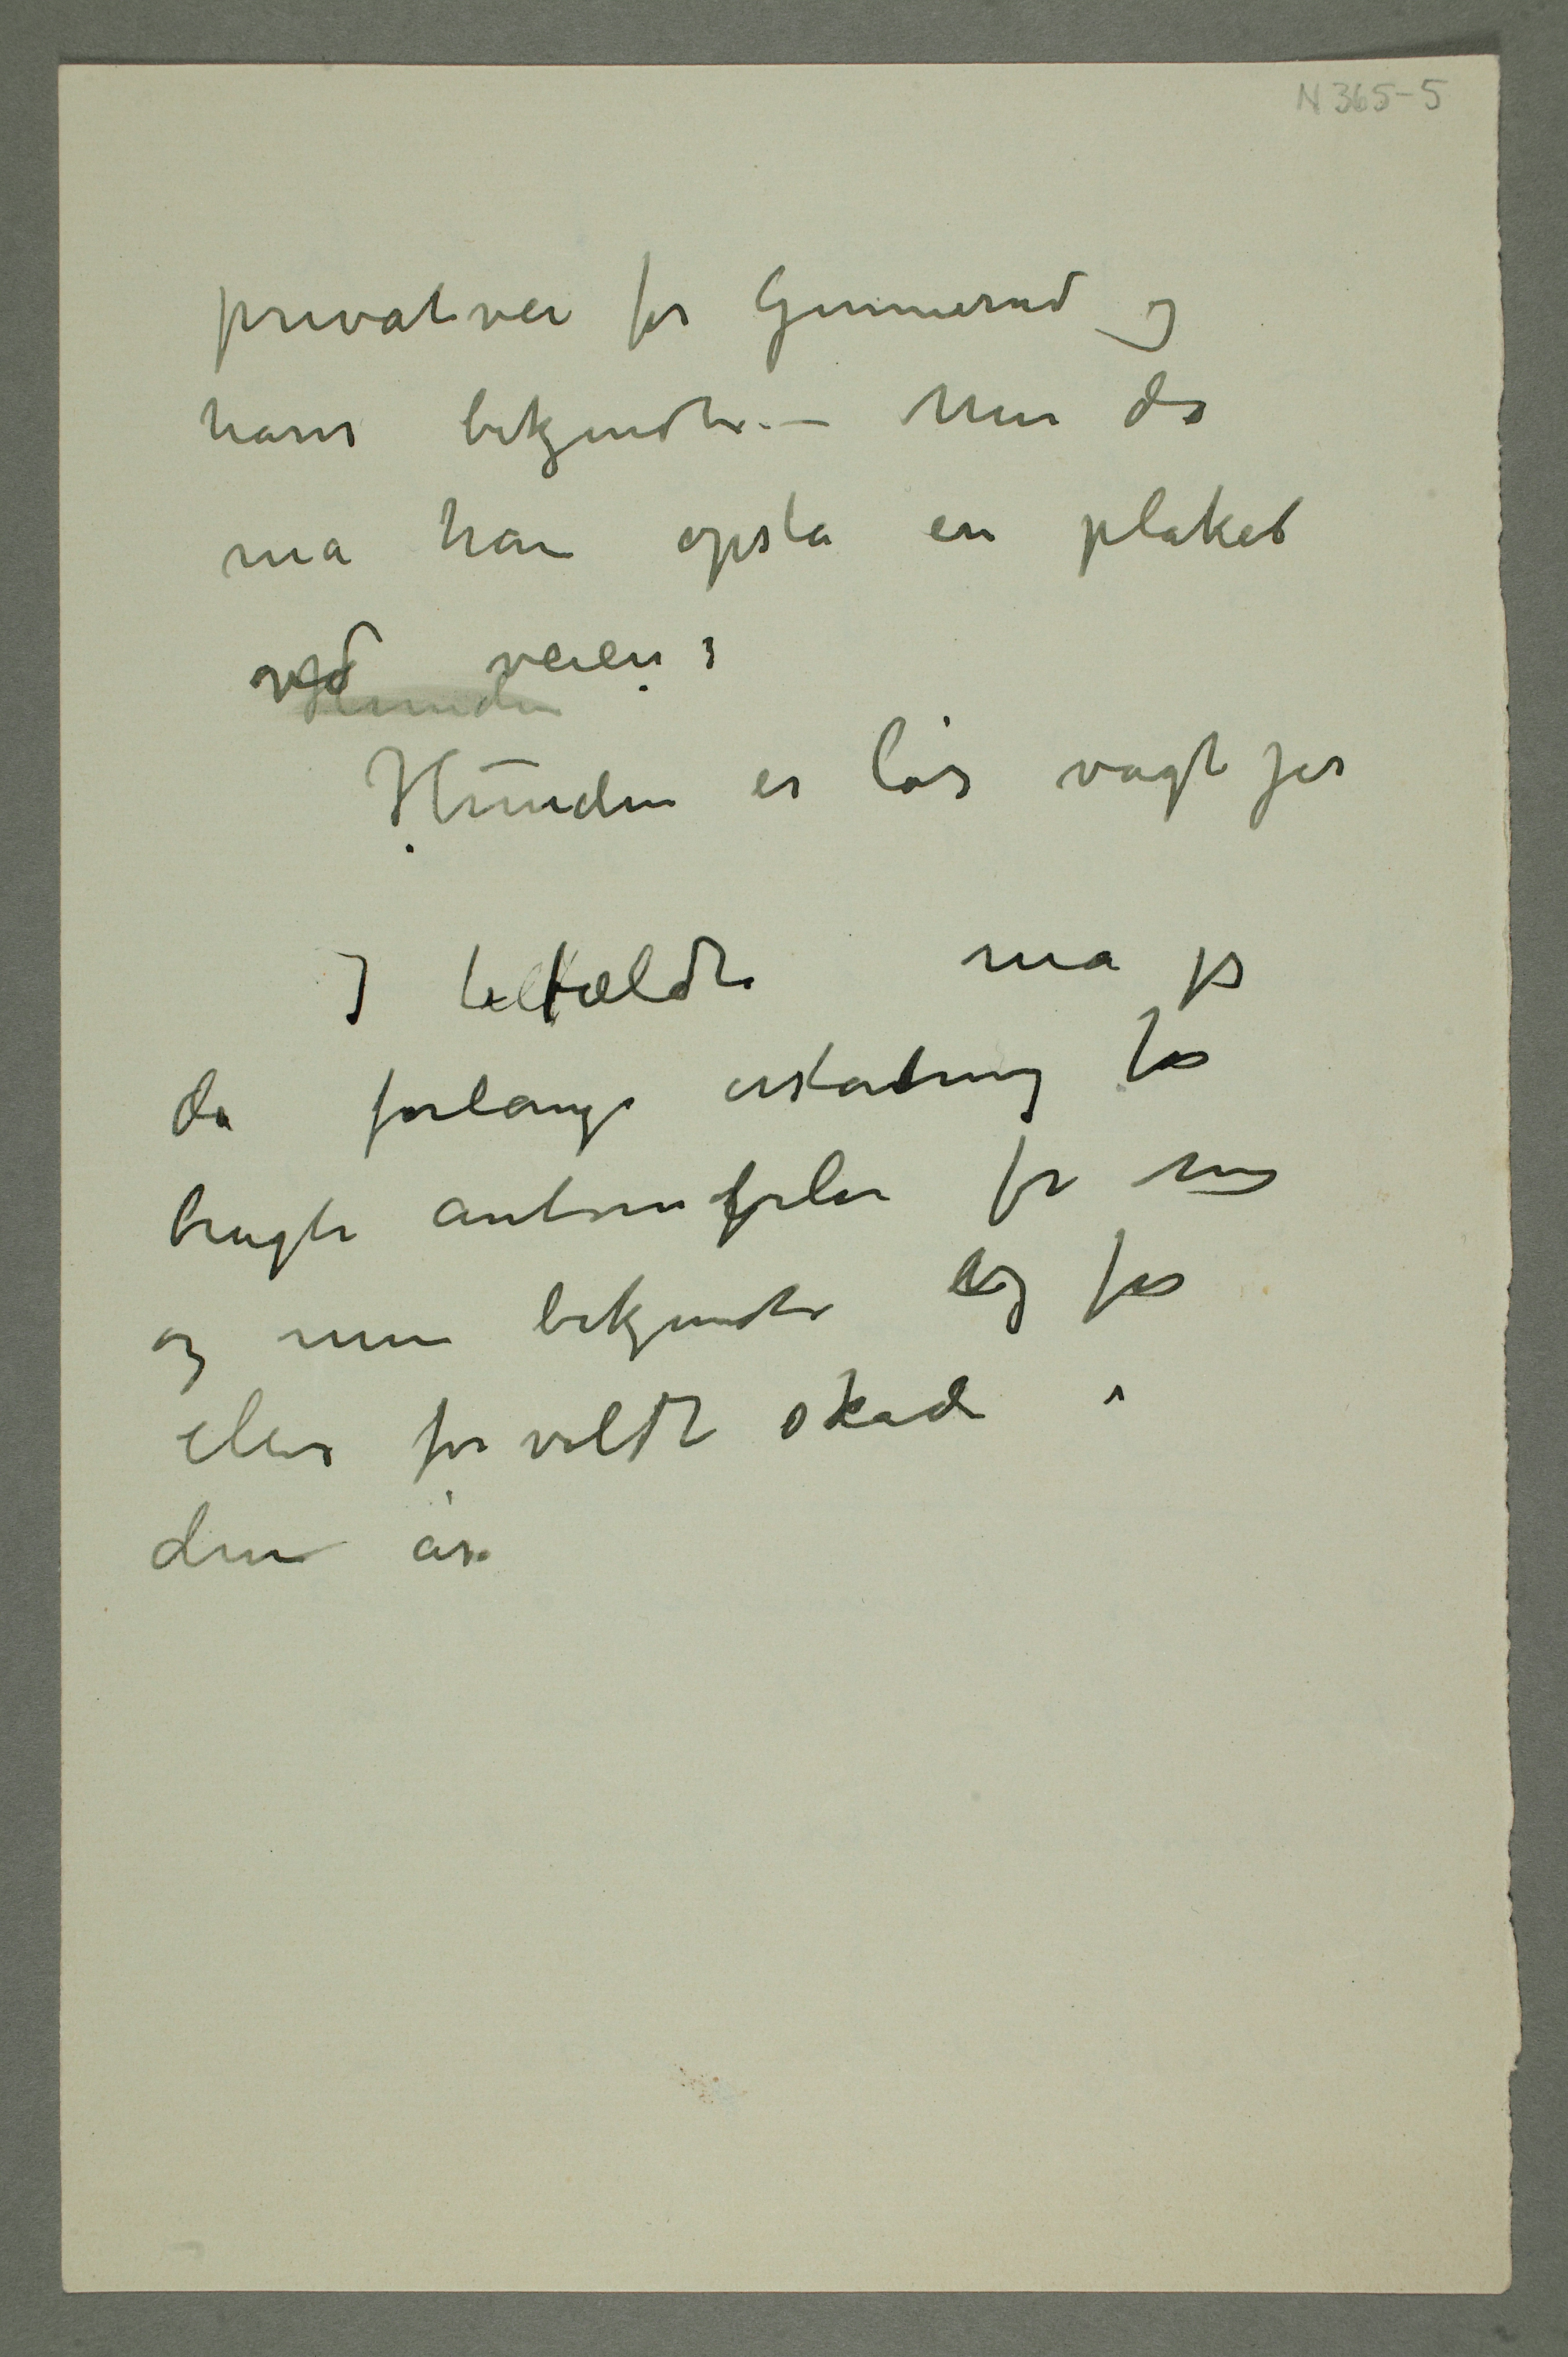 N 365-5
privatvei for Gunnerud og
hans bekjendte. – Men da
må han opslå en plakat
ved veien:
Hunden
Hunden er løs vogt jer
I tilfældt må jeg
da forlange erstatning for
brugte automobiler for mig
og mine bekjendte og for
eller forvoldt skade i
den år